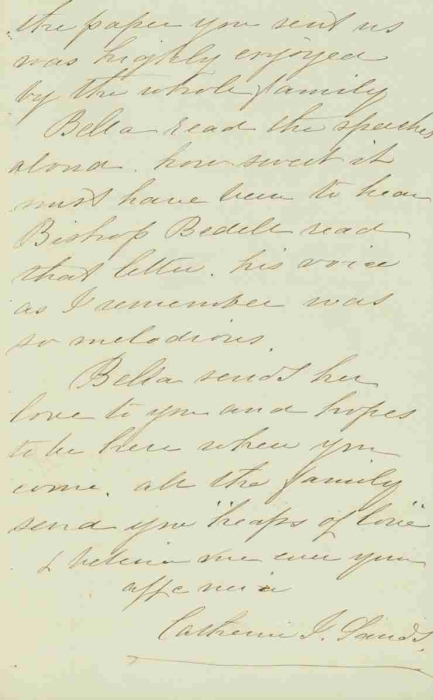 the paper you sent us
was highly enjoyed
by the whole family
Bella read the speeches
aloud. how sweet it
must have been to hear
Bishop Bedell read
that letter. his voice
as I remember was
so melodious.
Bella sends her
love to you and hopes
to be here when you
come. all the family
send you "heaps of love"
& believe me ever your
affc niece
Catherine J.